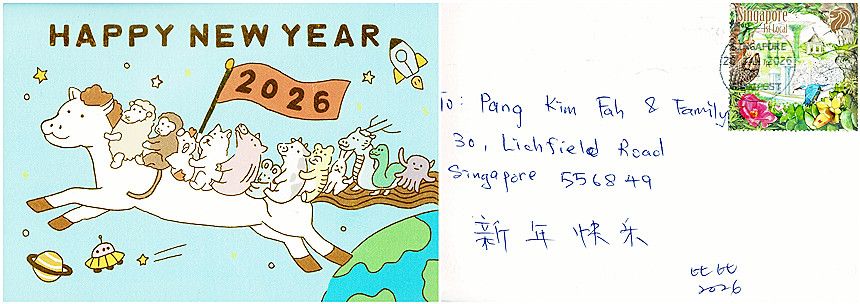 HAPPY NEW YEAR
2026
Singapore
1st Local
SINGAPORE
2026
To: Pang Kim Fah & Family
30, Lichfield Road
Singapore 556849
新年快乐
比比
2026